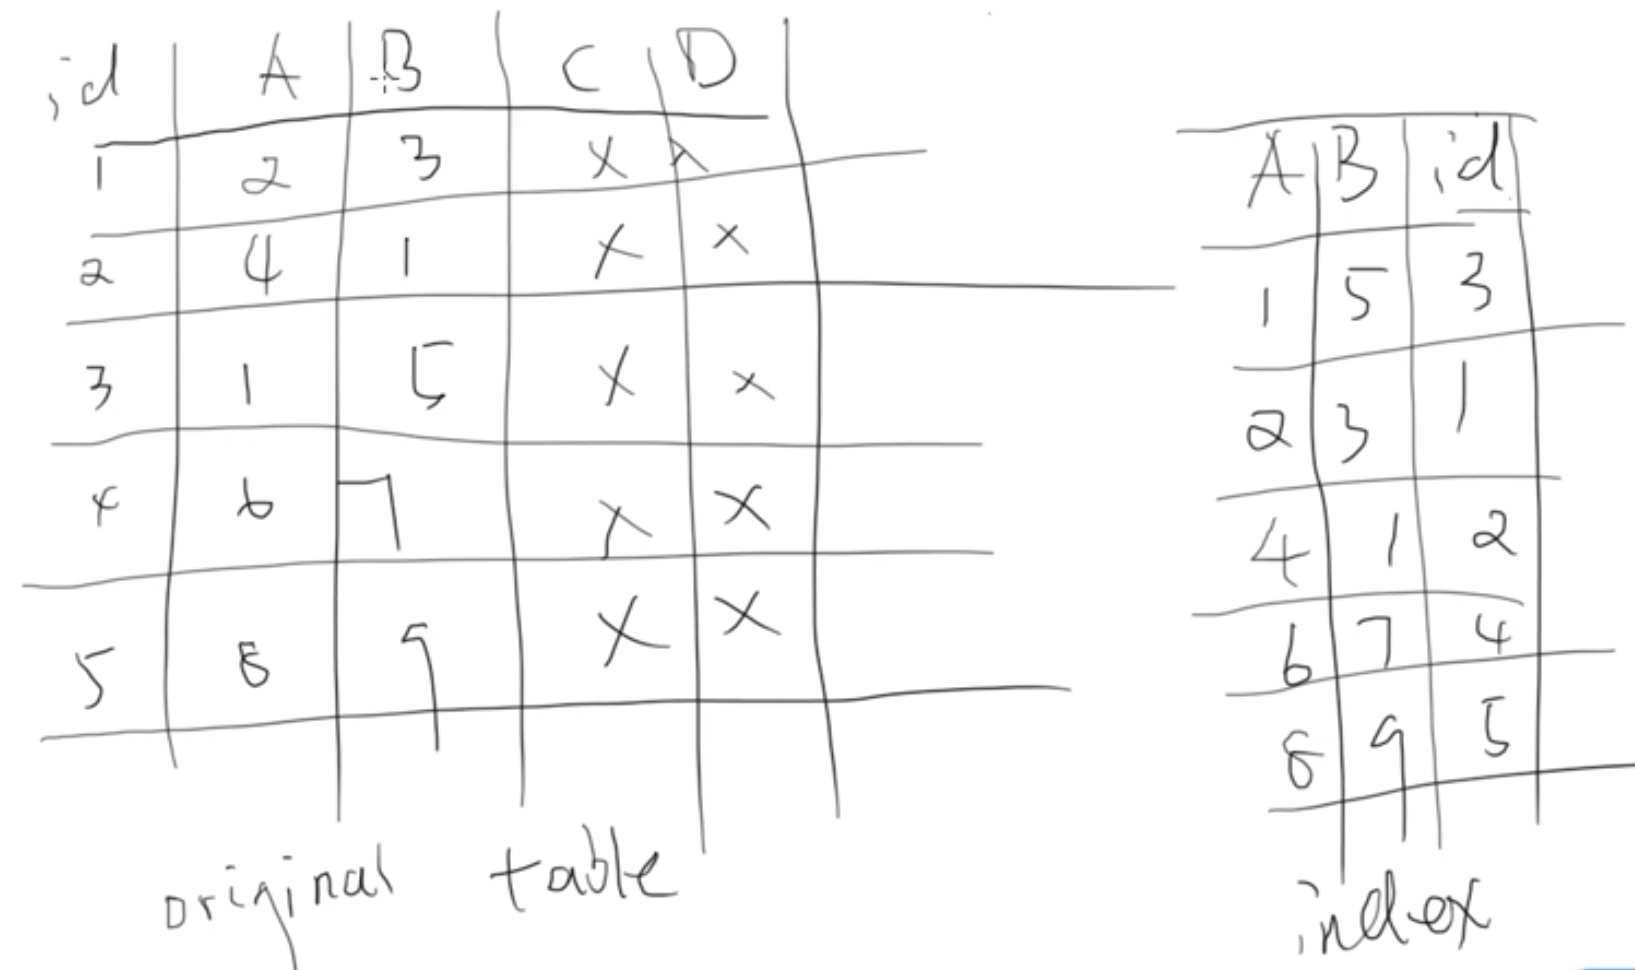 id A B C D
1 2 3 x x
2 4 1 x x
3 1 5 x x
4 6 7 x x
5 8 9 x x
original table
A B id
1 5 3
2 3 1
4 1 2
6 7 4
8 9 5
index